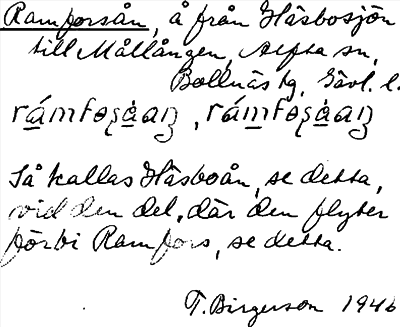 Ramforsån, å från Häsbosjön
till Mållången, Alfta sn,
Bollnäs tg, Gävl. l.
rámfoʂàaŋ, rámfoʂàaŋ
Så kallas Häsboån, se detta,
vid den del, där den flyter
förbi Ramfors, se detta.
T. Birgerson 1946